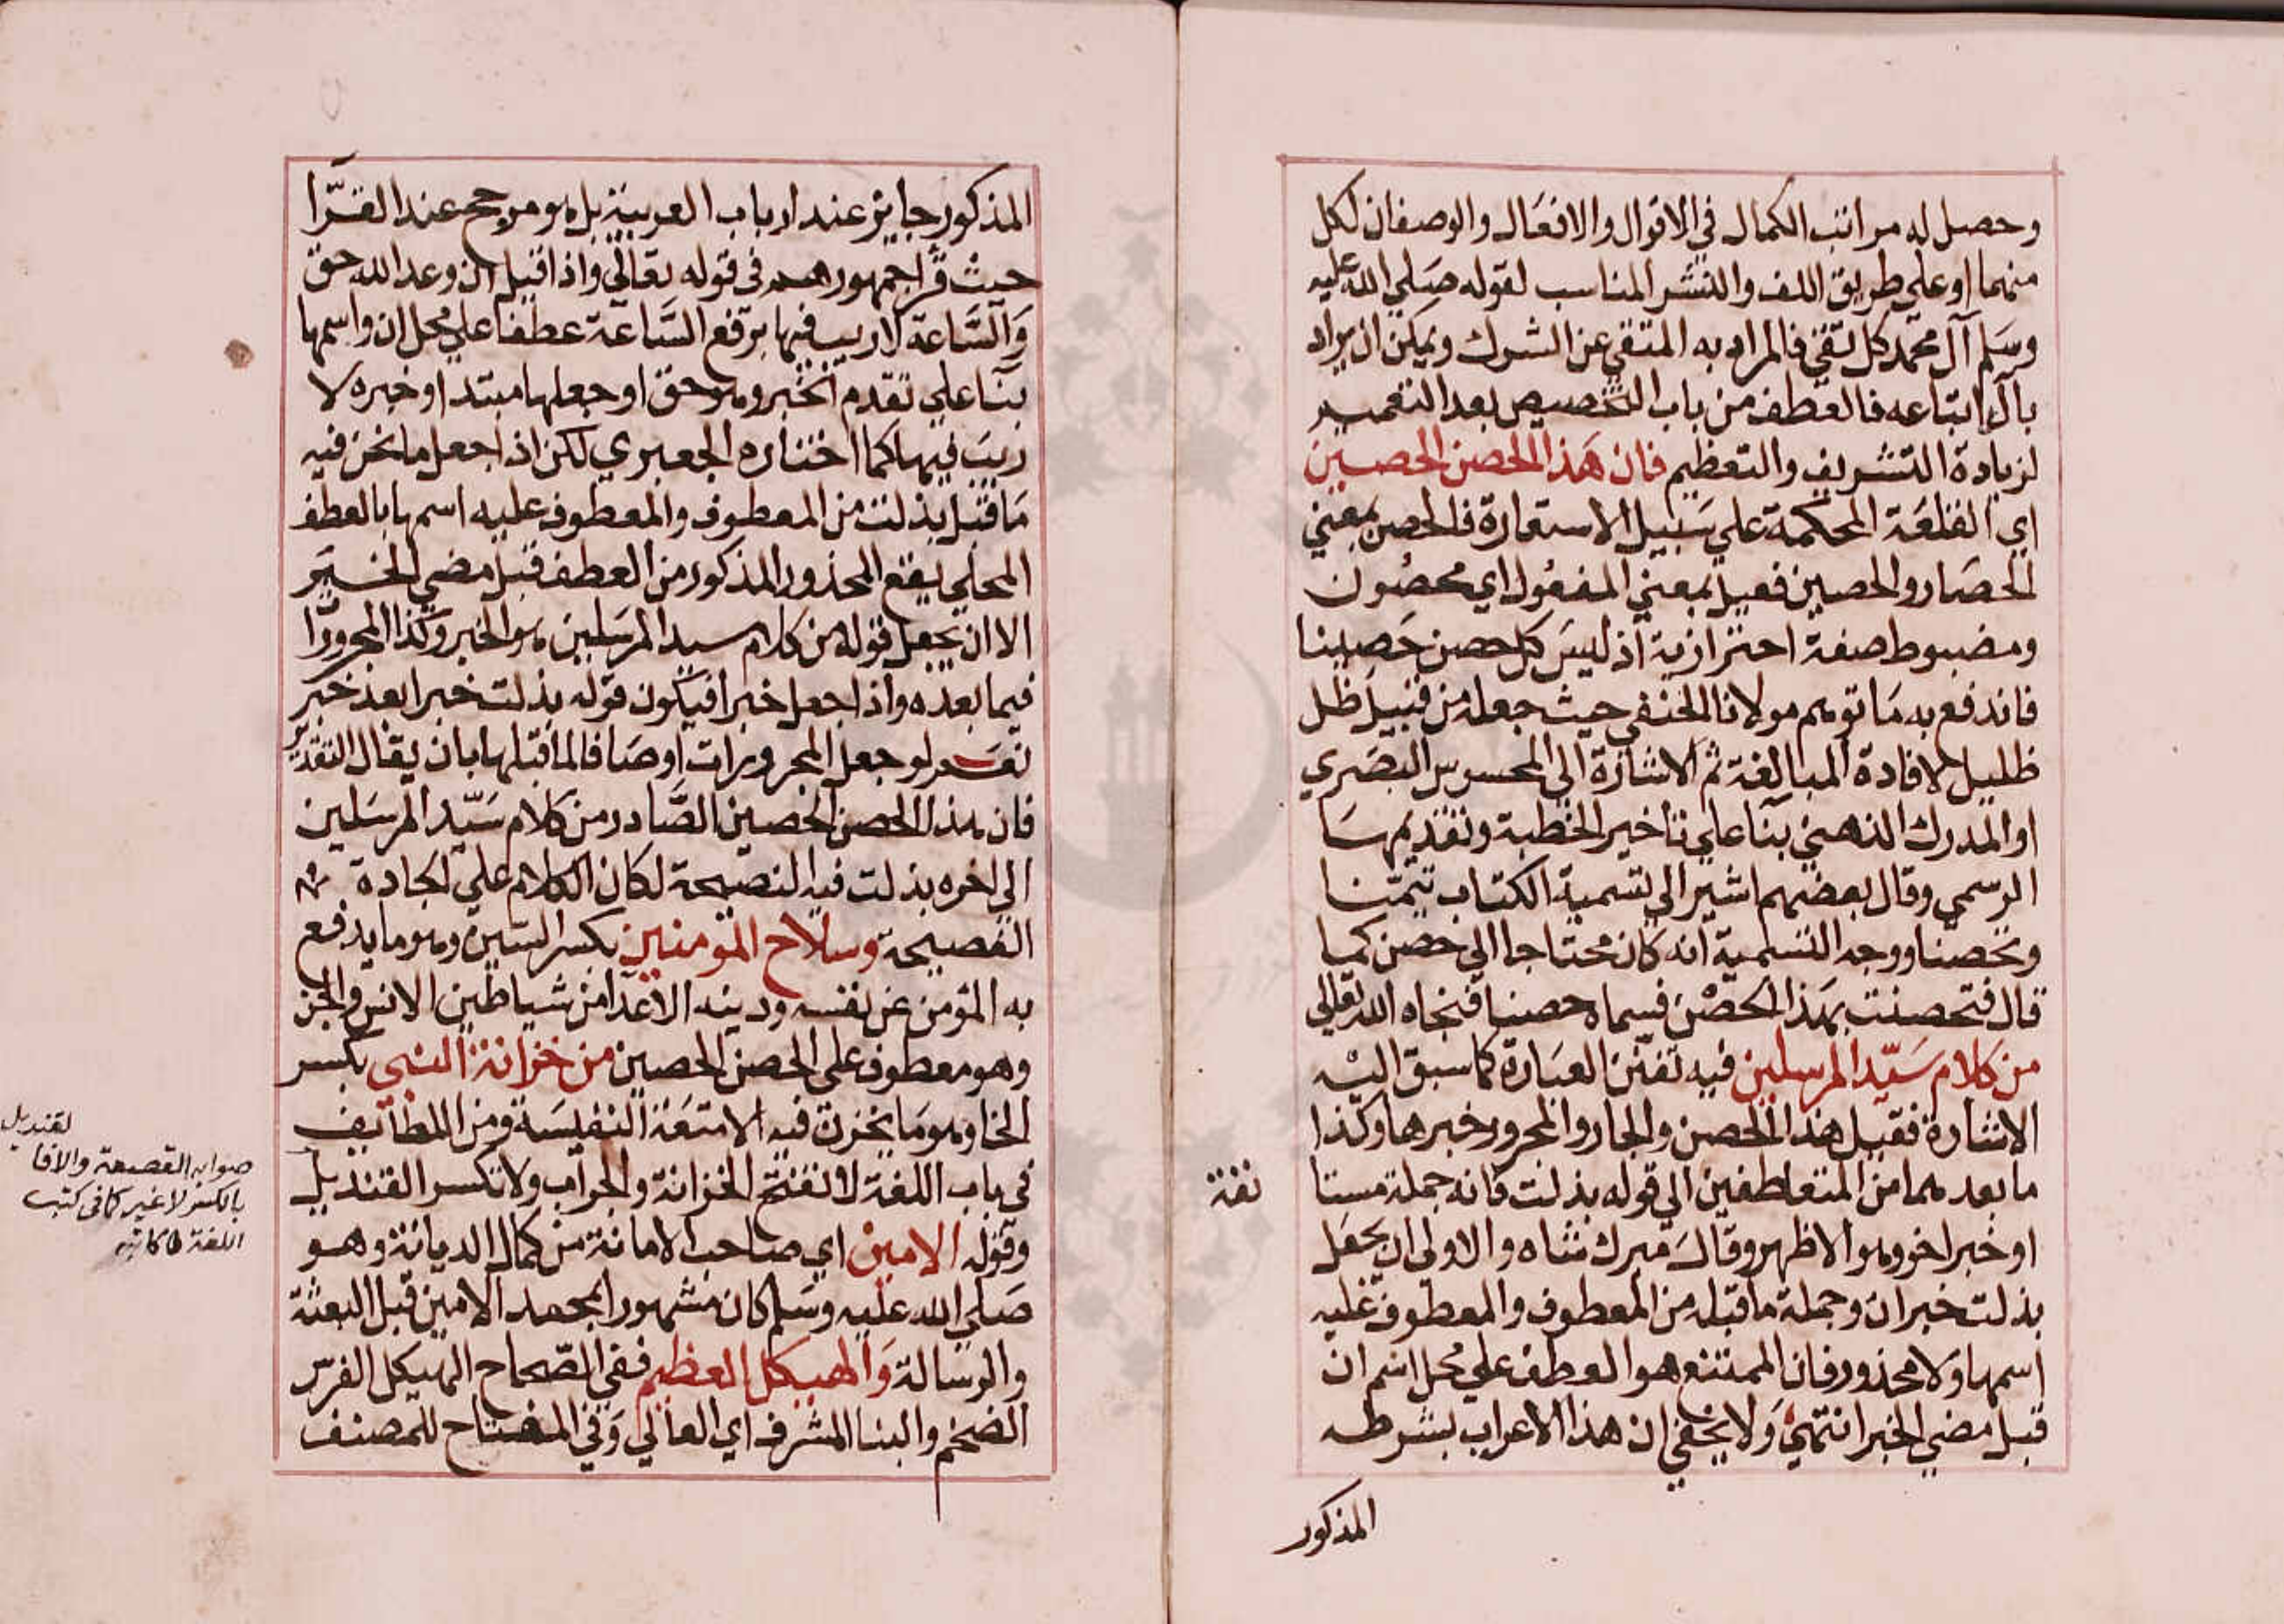 وحصل له مراتب الكمال في الاقوال والافعال والوصفان لكل
منهما او على طريق اللف والنشر المناسب لقوله صلي الله عليه
وسلم آل محمد كل تقي فالمراد به المتقي عن الشرك ويمكن ان يراد
بآله اتباعه فالعطف من باب التخصيص بعد التعميم
لزيادة التشريف والتعظيم فان هذا الحصن الحصين
اي القلعة المحكمة علي سبيل الاستعارة فالحصن بمعني
الحصار والحصين فعيل بمعني المفعول اي محصون
ومضبوط صفة احترازية اذ ليس كل حصن حصينا
فاندفع به ما توهم مولانا الحنفي حيث جعله من قبيل ظل
ظليل لافادة المبالغة ثم الاشارة الي المحسوس البصري
او المدرك الذهني بنآ علي تاخير الخطبة وتقديمها
الرسمي وقال بعضهم اشير الي تسمية الكتاب تيمنا
وتحصنا ووجه التسمية انه كان محتاجا الي حصن كما
قال فتحصنت بهذا الحصن فسماه حصنا فنجاه الله تعالي
من كلام سيد المرسلين فيه تفنن العبارة كما سبق اليه
الاشارة فقيل هذا الحصن والجار والمجرور خبرها وكذا
ما بعدهما من المتعاطفين الي قوله بذلت فانه جملة مستا
نفة
او خبر اخر وهو الاظهر وقال ميرك شاه والاولى ان يجعل
بذلت خبر ان وجملة ما قبله من المعطوف والمعطوف عليه
اسمها ولا محذور فان الممتنع هو العطف علي محل اسم ان
قبل مضي الخبر انتهي ولا يخفي ان هذا الاعراب بشرطه
المذكور
المذكور جايز عند ارباب العربية بل هو مرجح عند القرّا
حيث قرا جمهورهم في قوله تعالي واذا قيل ان وعد الله حق
والساعة لا ريب فيها برفع الساعة عطفا علي محل ان واسمها
بنآ علي تقدم الخبر وهو حق او جعلها مبتدا وخبره لا
ريب فيها كما اختاره الجعبري لكن اذا جعل ما نحن فيه
ما قبل بذلت من المعطوف والمعطوف عليه اسمها بالعطف
المحلي يقع المحذور المذكور من العطف قبل مضي الخبر
الا ان يجعل قوله من كلام سيد المرسلين هو الخبر وكذا المجرورا
فيما بعده واذا جعل خبرا فيكون قوله بذلت خبرا بعد خبر
نعم لو جعل المجرورات اوصافا لما قبلها بان يقال التقدير
فان هذا الحصن الحصين الصادر من كلام سيد المرسلين
الي اخره بذلت فيه النصيحة لكان الكلام علي الجادة
الفصيحة وسلاح المؤمنين بكسر السين وهو ما يدفع
به المؤمن عن نفسه ودينه الاعدا من شياطين الانس والجن
وهو معطوف على الحصن الحصين من خزانة النبي بكسر
الخا وهو ما يخزن فيه الامتعة النفيسة ومن اللطائف
في باب اللغة لا تفتح الخزانة والجراب ولا تكسر القنديل
وقوله الامين اي صاحب الامانة من كمال الديانة وهو
صلي الله عليه وسلم كان مشهورا بمحمد الامين قبل البعثة
والرسالة والهيكل العظيم ففي الصحاح الهيكل الفرس
الضخم والبنا المشرف اي العالي وفي المفتاح للمصنف
لقنديل
صوابه القصعة والا فا
بالكسر لا غير كما في كتب
اللغة